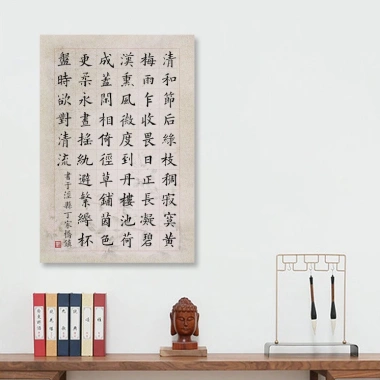 清和節后綠枝稠寂寞黃
梅雨乍收畏日正長凝碧
漢熏風微度到丹樓池荷
成蓋閑相倚徑草鋪茵色
更柔永晝搖紈避繁縟杯
盤時欲對清流
書于涇縣丁家橋鎮